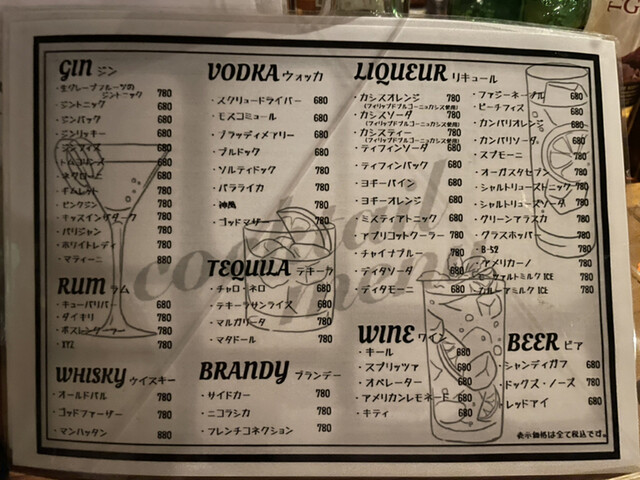 GIN ジン
・生グレープフルーツの
ジントニック 780
・ジントニック 680
・ジンバック 680
・ジンリッキー 680
・ジンフィズ 680
・トムコリンズ 780
・ネグローニ 780
・ギムレット 780
・ピンクジン 780
・キャスインザダーク 780
・パリジャン 780
・ホワイトレディ 780
・マティーニ 880
RUM ラム
・キューバリバー 680
・ダイキリ 780
・ボスレンクーラー 780
・XYZ 780
WHISKY ウイスキー
・オールドパル 780
・ゴッドファーザー 780
・マンハッタン 880
VODKA ウォッカ
・スクリュードライバー 680
・モスコミュール 680
・ブラッディメアリー 680
・ブルドック 680
・ソルティドック 780
・バラライカ 780
・神風 780
・ゴッドマザー 780
TEQUILA テキーラ
・チャロ・ネロ 680
・テキーラサンライズ 680
・マルガリータ 780
・マタドール 780
BRANDY ブランデー
・サイドカー 780
・ニコラシカ 780
・フレンチコネクション 780
LIQUEUR リキュール
・カシスオレンジ 780
(フィリップドブルゴーニュカシス使用)
・カシスソーダ 780
(フィリップドブルゴーニュカシス使用)
・カシスティー 780
(フィリップドブルゴーニュカシス使用)
・ティフィンソーダ 680
・ティフィンバック 680
・ヨギーパイン 680
・ヨギーオレンジ 680
・ミスティアトニック 680
・アプリコットクーラー 780
・チャイナブルー 780
・ディタソーダ 780
・ディタモーニ 780
・ファジーネーブル 680
・ピーチフィズ 680
・カンパリオレンジ 680
・カンパリソーダ 680
・スプモーニ 780
・オーガスタセブン 780
・シャルトリューズトニック 780
・シャルトリューズソーダ 780
・グリーンアラスカ 780
・グラスホッパー 780
・B-52 780
・アメリカーノ 780
・モーツァルトミルク ICE 780
・カルーアミルク ICE 780
WINE ワイン
・キール 680
・スプリッツァ 680
・オペレーター 680
・アメリカンレモネード 680
・キティ 680
BEER ビア
・シャンディガフ 680
・ドッグズ・ノーズ 780
・レッドアイ 680
cocktail
menu
表示価格は全て税込です。